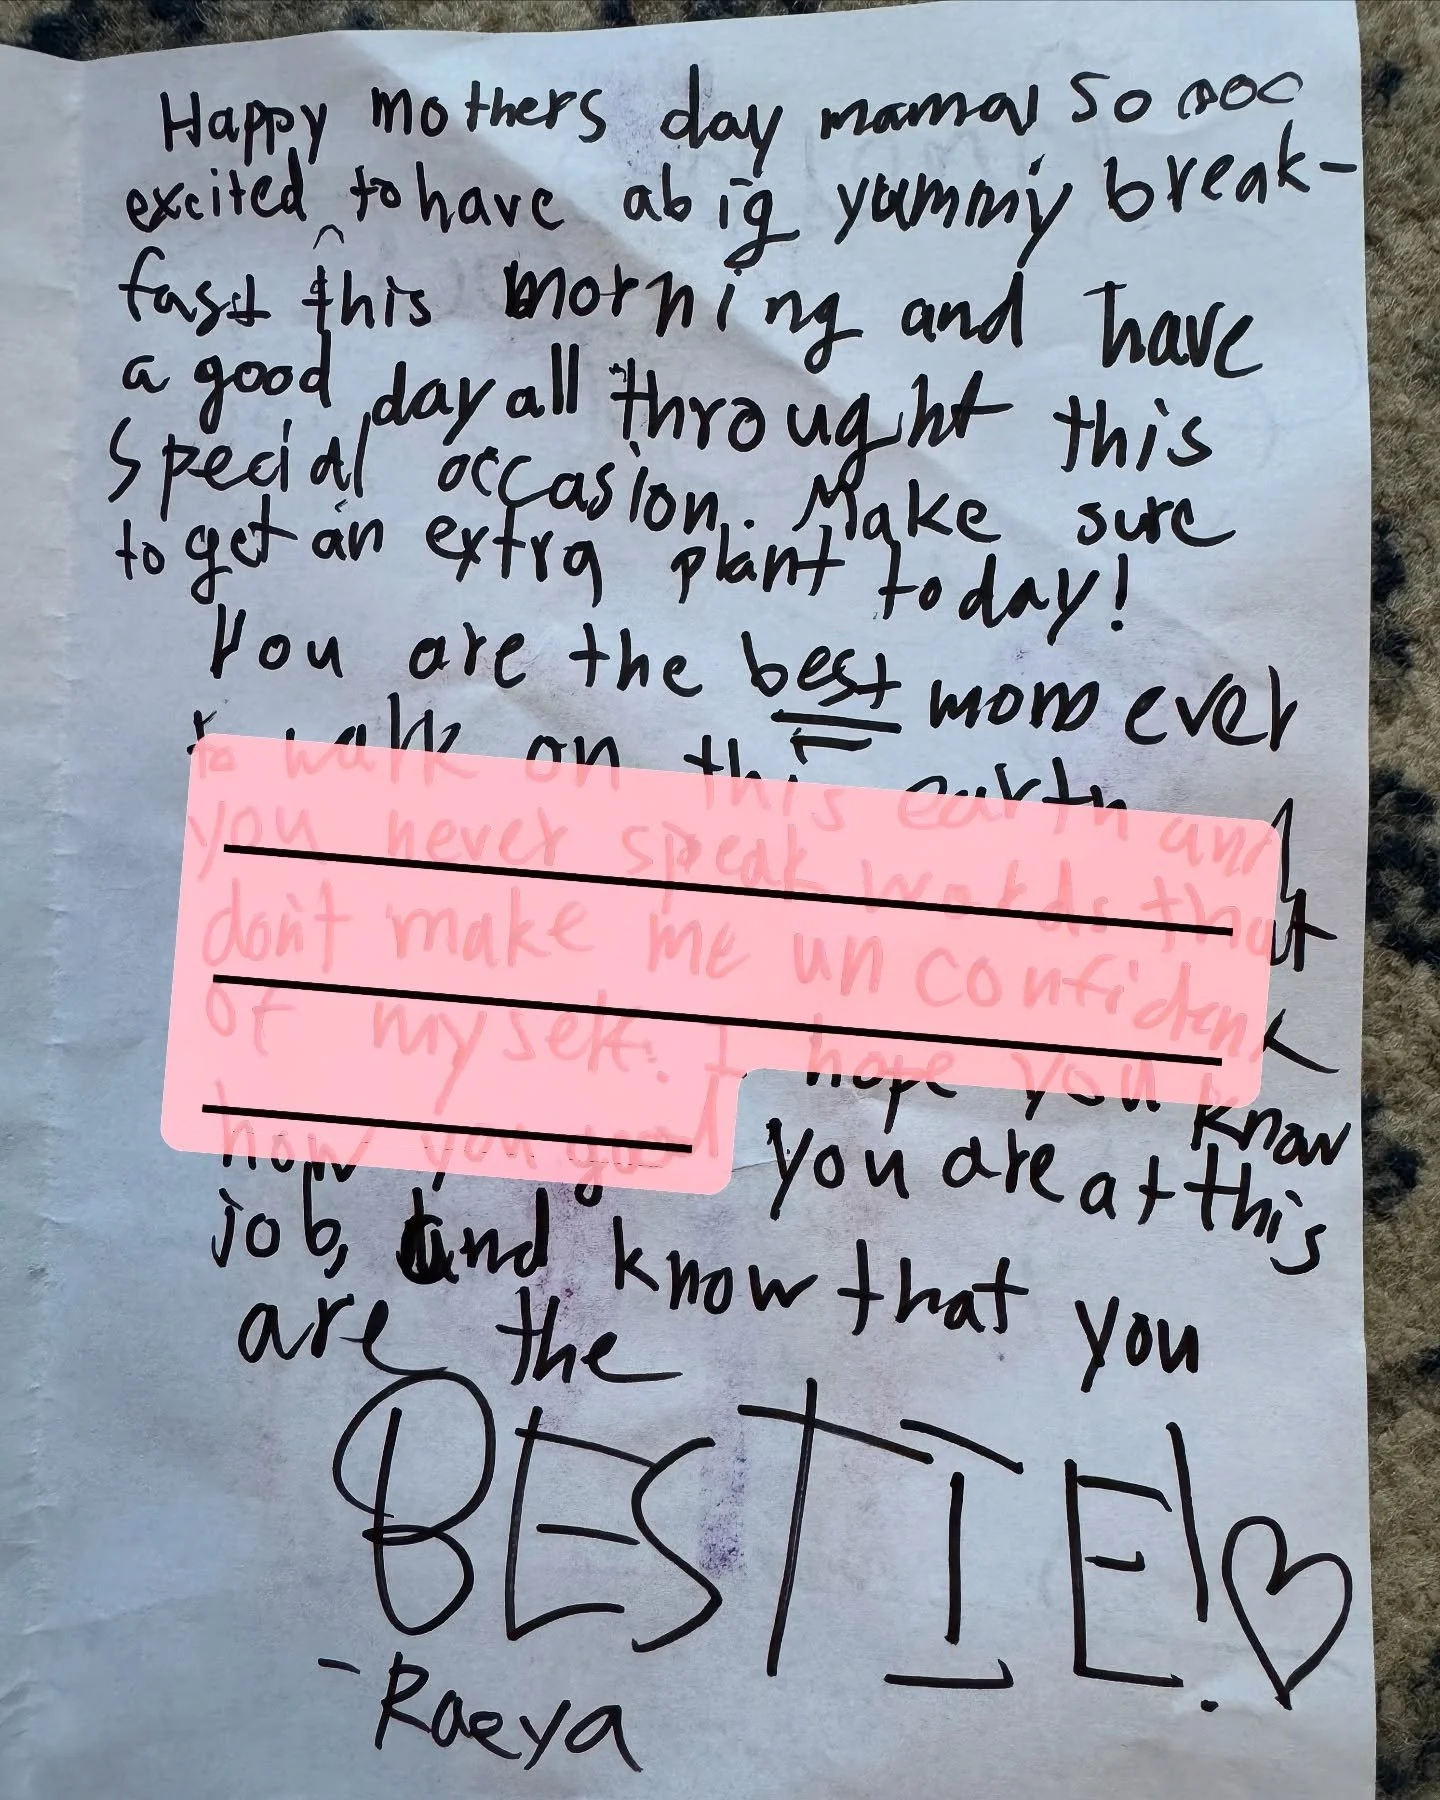 Happy mothers day mama so ooo
excited to have a big yummy break-
fast this morning and have
a good day all throught this
special occasion. Make sure
to get an extra plant today!
You are the best mom ever
to walk on this earth and
you never speak words that
don't make me un confident
of myself. I hope you know
how you good you are at this
job, and know that you
are the
BESTIE!
-Raeya